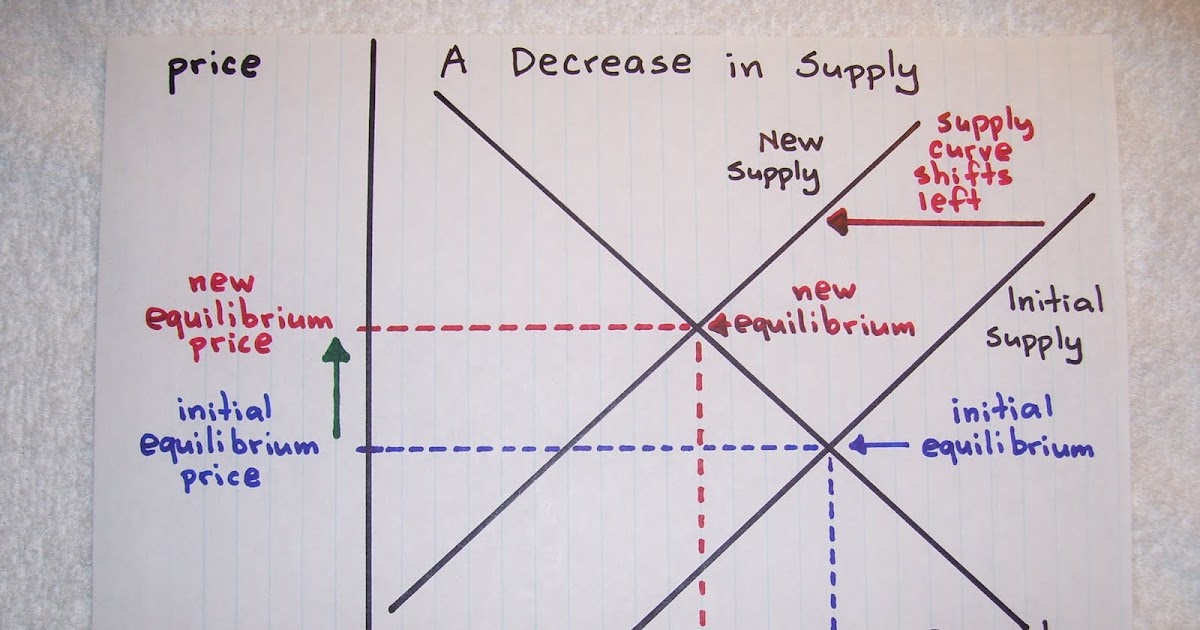 price
A Decrease in Supply
New
Supply
supply
curve
shifts
left
new
equilibrium
price
new
equilibrium
Initial
supply
initial
equilibrium
price
initial
equilibrium